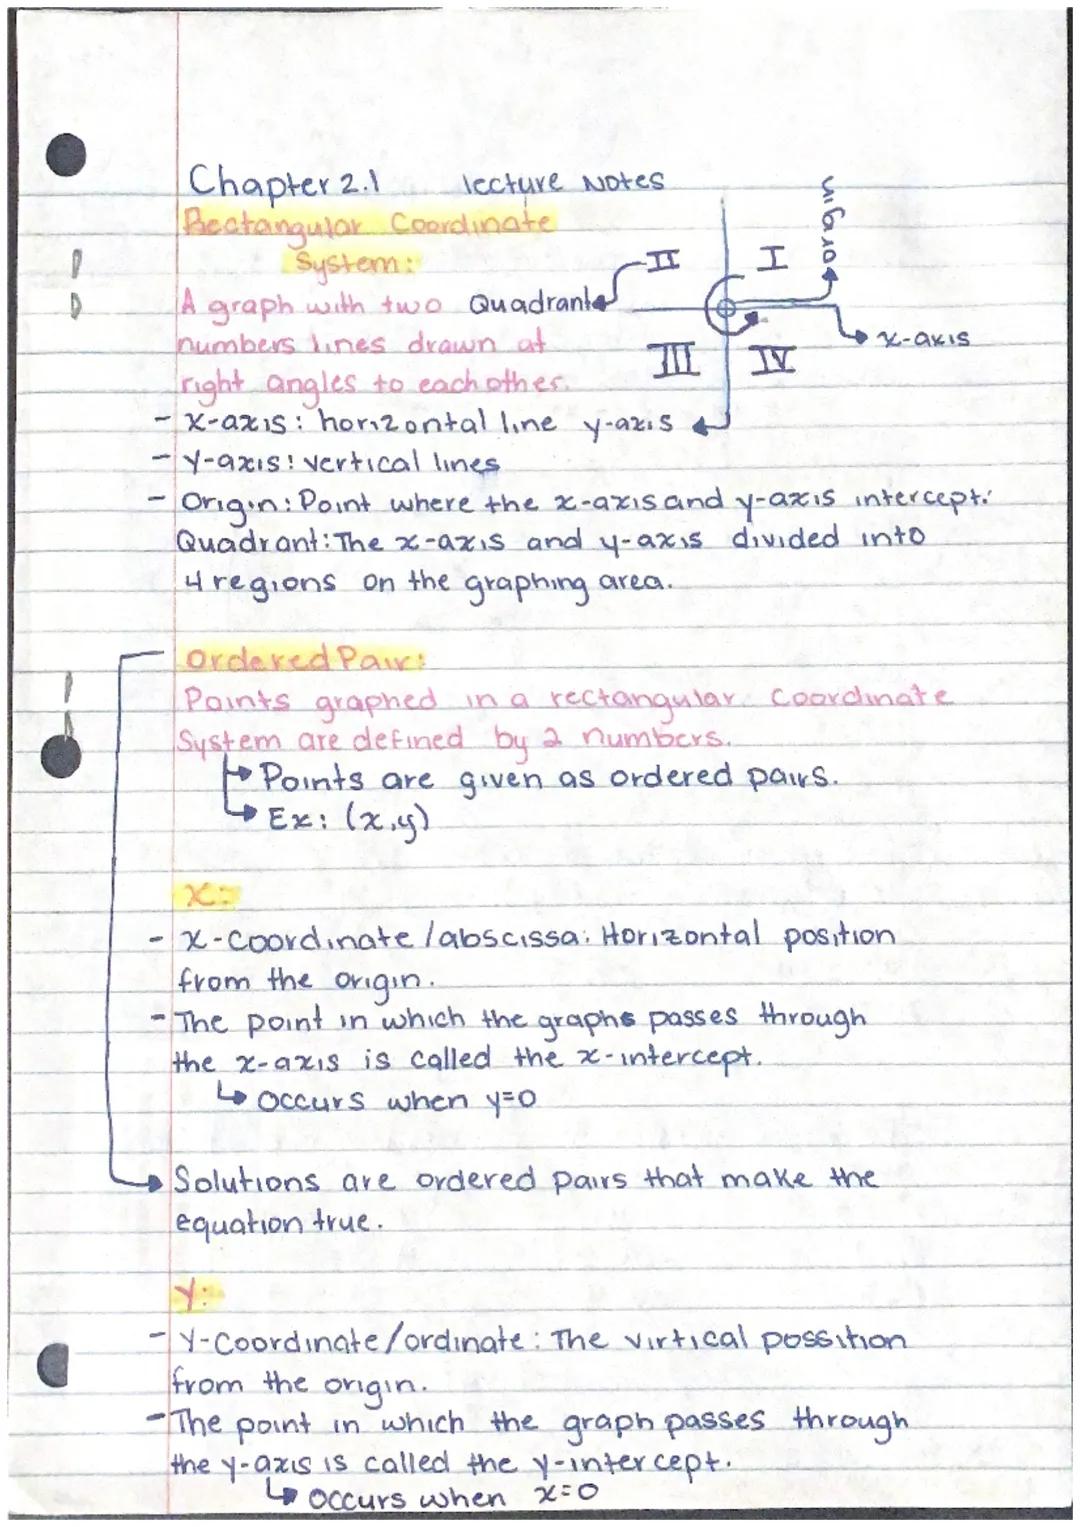 Chapter 2.1 lecture Notes
Rectangular Coordinate
System:
A graph with two
numbers lines drawn at
right angles to each other.
Quadrant
II
I
III
IV
origin
x-axis
y-axis
- X-axis: horizontal line
- Y-axis: vertical lines
- Origin: Point where the x-axis and y-axis intercept.
Quadrant: The x-axis and y-axis divided into
4 regions on the graphing area.
Ordered Pair:
Points graphed in a rectangular Coordinate
System are defined by 2 numbers.
↳ Points are given as ordered pairs.
↳ Ex: (x,y)
X:
- X-Coordinate/abscissa: Horizontal position
from the origin.
- The point in which the graphs passes through
the x-axis is called the x-intercept.
↳ Occurs when y=0
→ Solutions are ordered pairs that make the
equation true.
Y:
- Y-Coordinate/ordinate: The virtical possition
from the origin.
- The point in which the graph passes through
the y-axis is called the y-intercept.
↳ Occurs when x=0